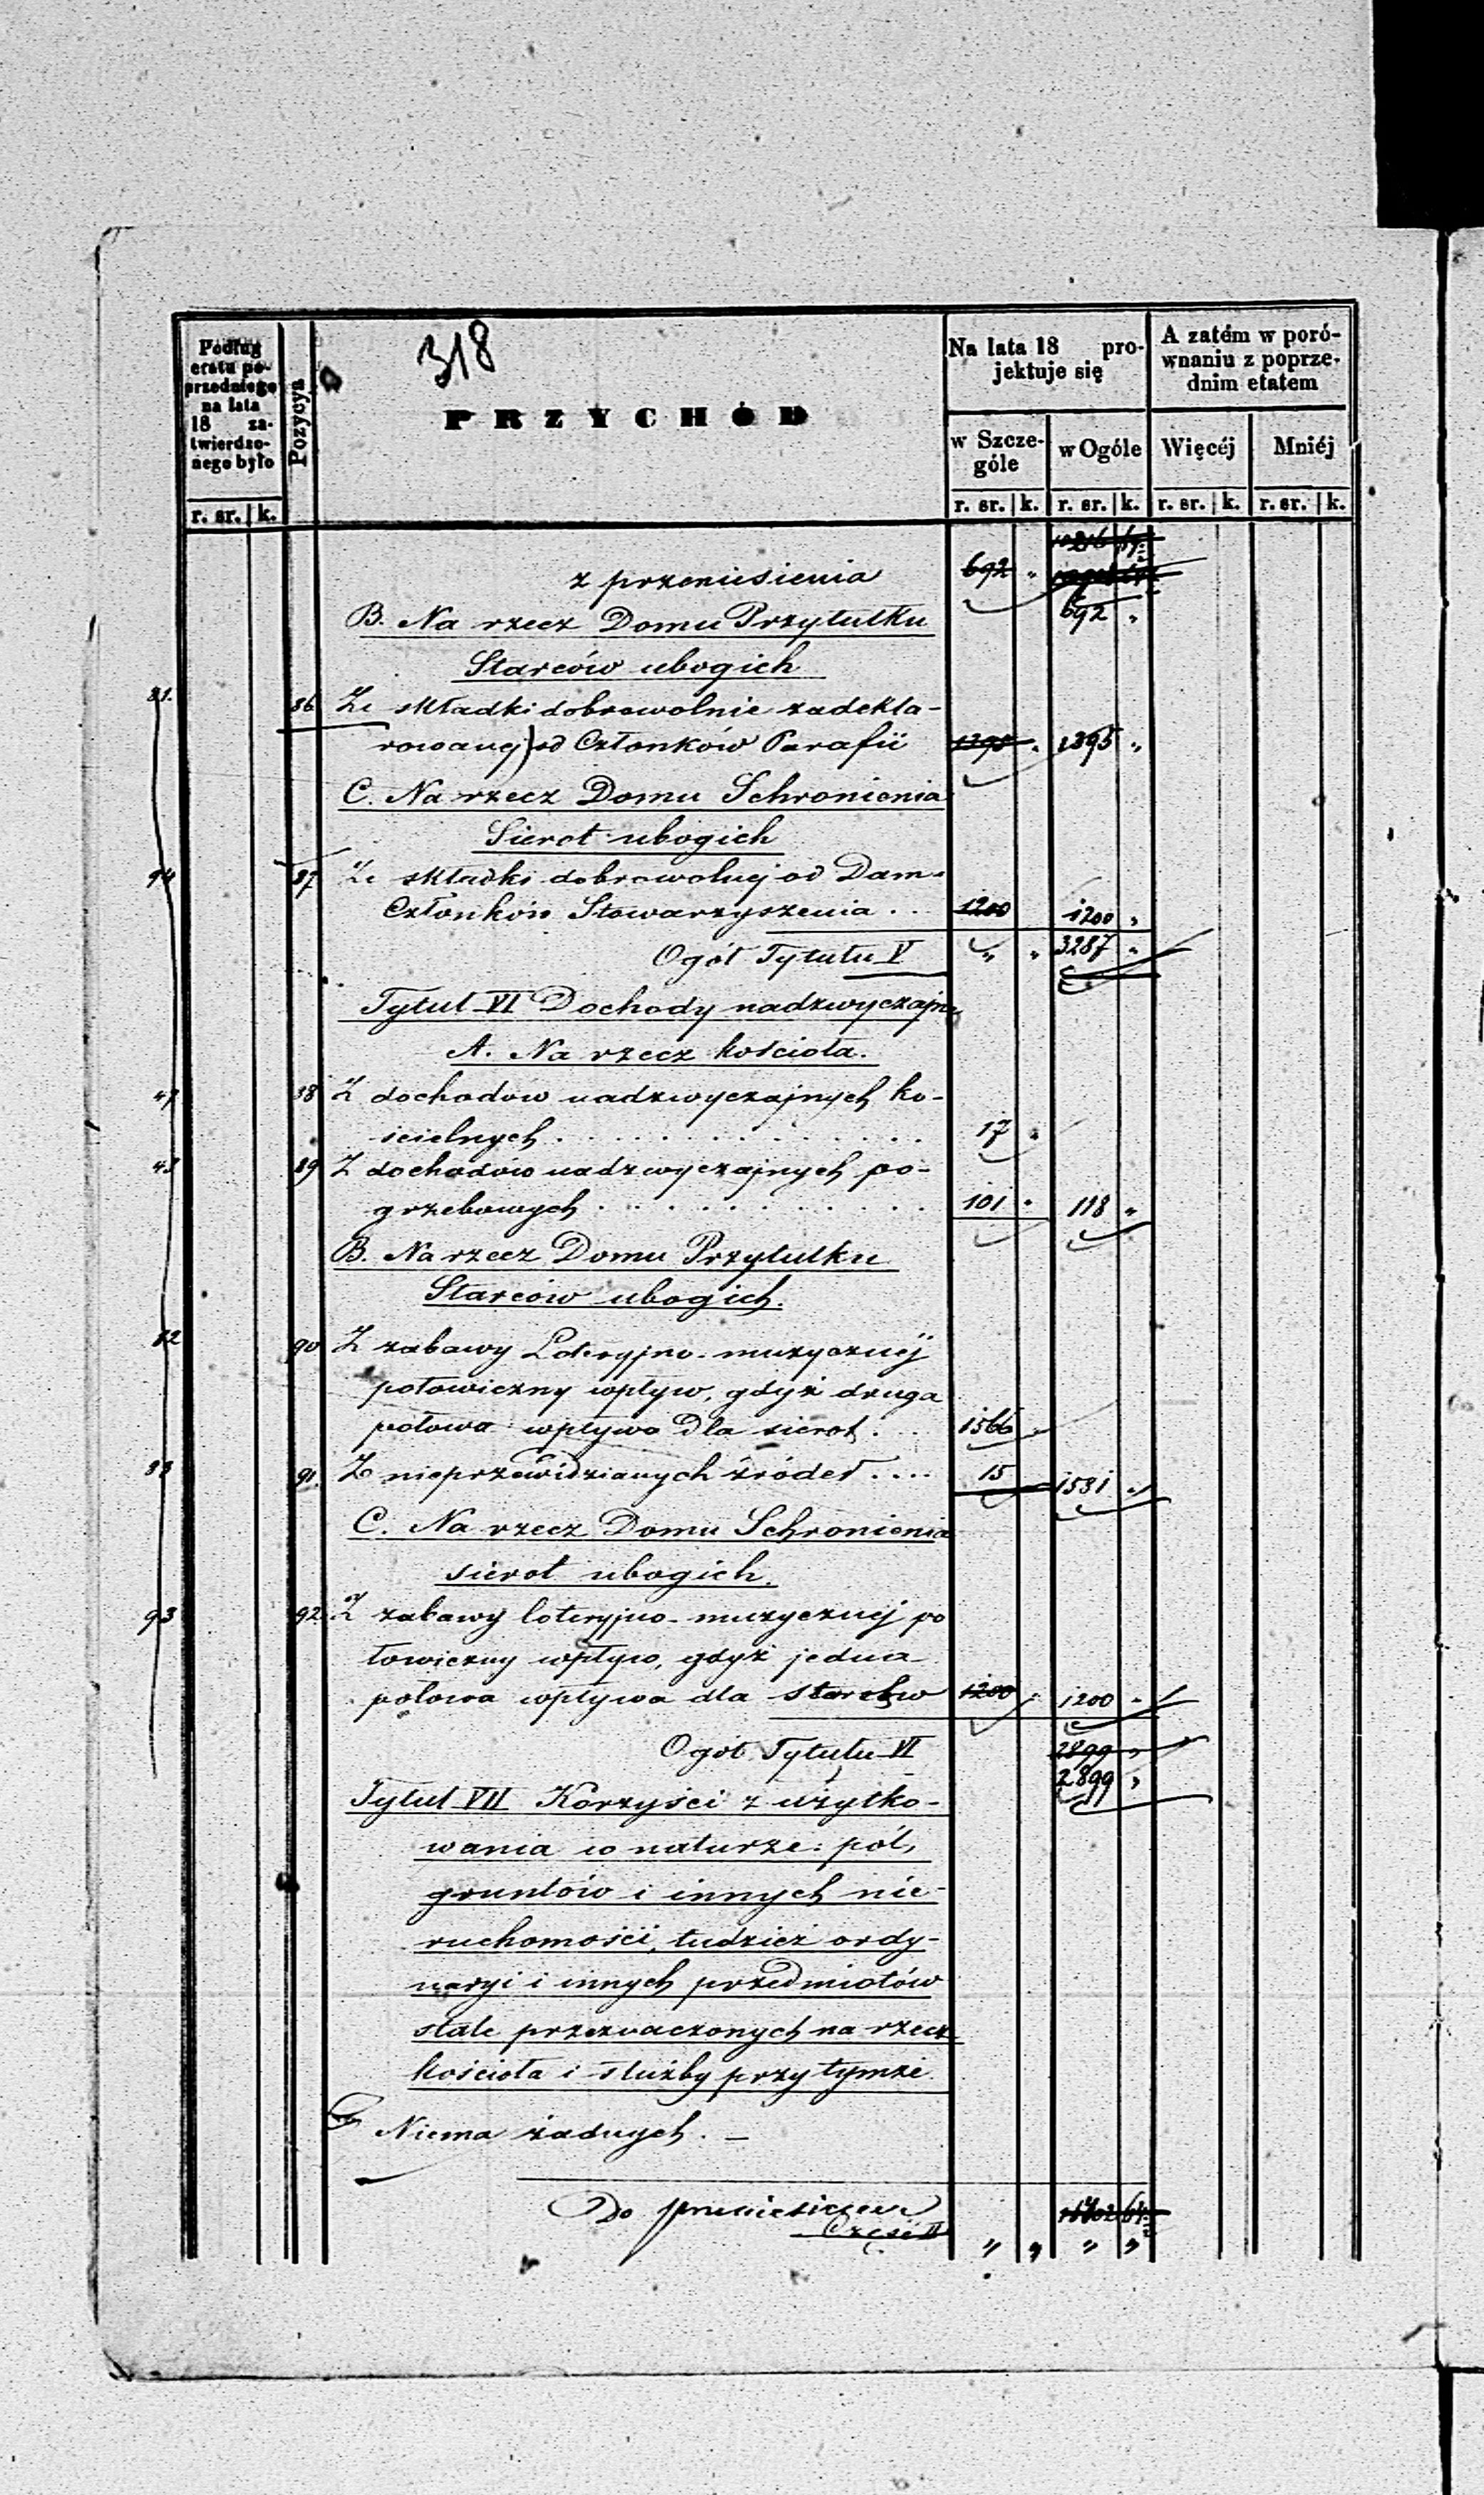 318
Podług
etatu po-
przedniego
na lata
18 za-
twierdzo-
nego było
r. sr. k.
Pozycya
PRZYCHÓD
Na lata 18 pro-
jektuje się
w Szcze-
góle
r. sr. k.
w Ogóle
r. sr. k.
A zatém w poró-
wnaniu z poprze-
dnim etatem
Więcéj
r. sr. k.
Mniéj
r. sr. k.
z przeniesienia 692 "
692 "
B. Na rzecz Domu Przytułku
Starców ubogich
81. 86 Ze składki dobrowolnie zadekla-
rowanej od Członków Parafii 1395 " 1395 "
C. Na rzecz Domu Schronienia
Sierot ubogich
94 87 Ze składki dobrowolnej od Dam
Członków Stowarzyszenia . . 1200 1200 "
Ogół Tytułu V " " 3287 "
Tytuł VI Dochody nadzwyczajne
A. Na rzecz kościoła.
47 88 Z dochodów nadzwyczajnych ko-
ścielnych . . . . . . . . . . . . 17 "
89 Z dochodów nadzwyczajnych po-
grzebowych . . . . . . . . . . . 101 " 118 "
B. Na rzecz Domu Przytułku
Starców ubogich.
82 90 Z zabawy Loteryjno-muzycznéj
połowiczny wpływ, gdyż druga
połowa wpływa dla sierot . . . 1566 "
83 91. Z nieprzewidzianych źródeł . . . . 15 1581 "
C. Na rzecz Domu Schronienia
sierot ubogich.
93 92 Z zabawy loteryjno-muzycznej po
łowiczny wpływ, gdyż jedna
połowa wpływa dla starców 1200 " 1200 "
Ogół Tytułu VI 2899 "
2899 "
Tytuł VII Korzyści z użytko-
wania w naturze: pól,
gruntów i innych nie-
ruchomości, tudzież ordy-
naryi i innych przedmiotów
stale przeznaczonych na rzecz
kościoła i służby przy tymże
Niema żadnych. —
Do przeniesienia
Części II " " " "